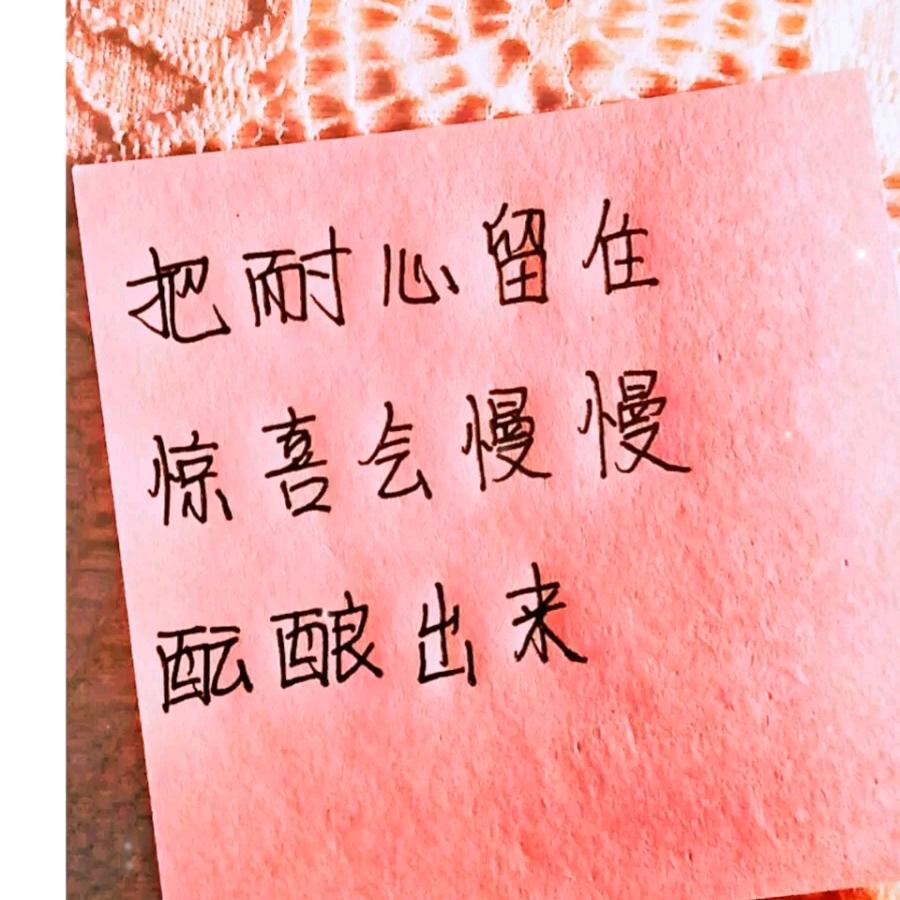 把耐心留住
惊喜会慢慢
酝酿出来